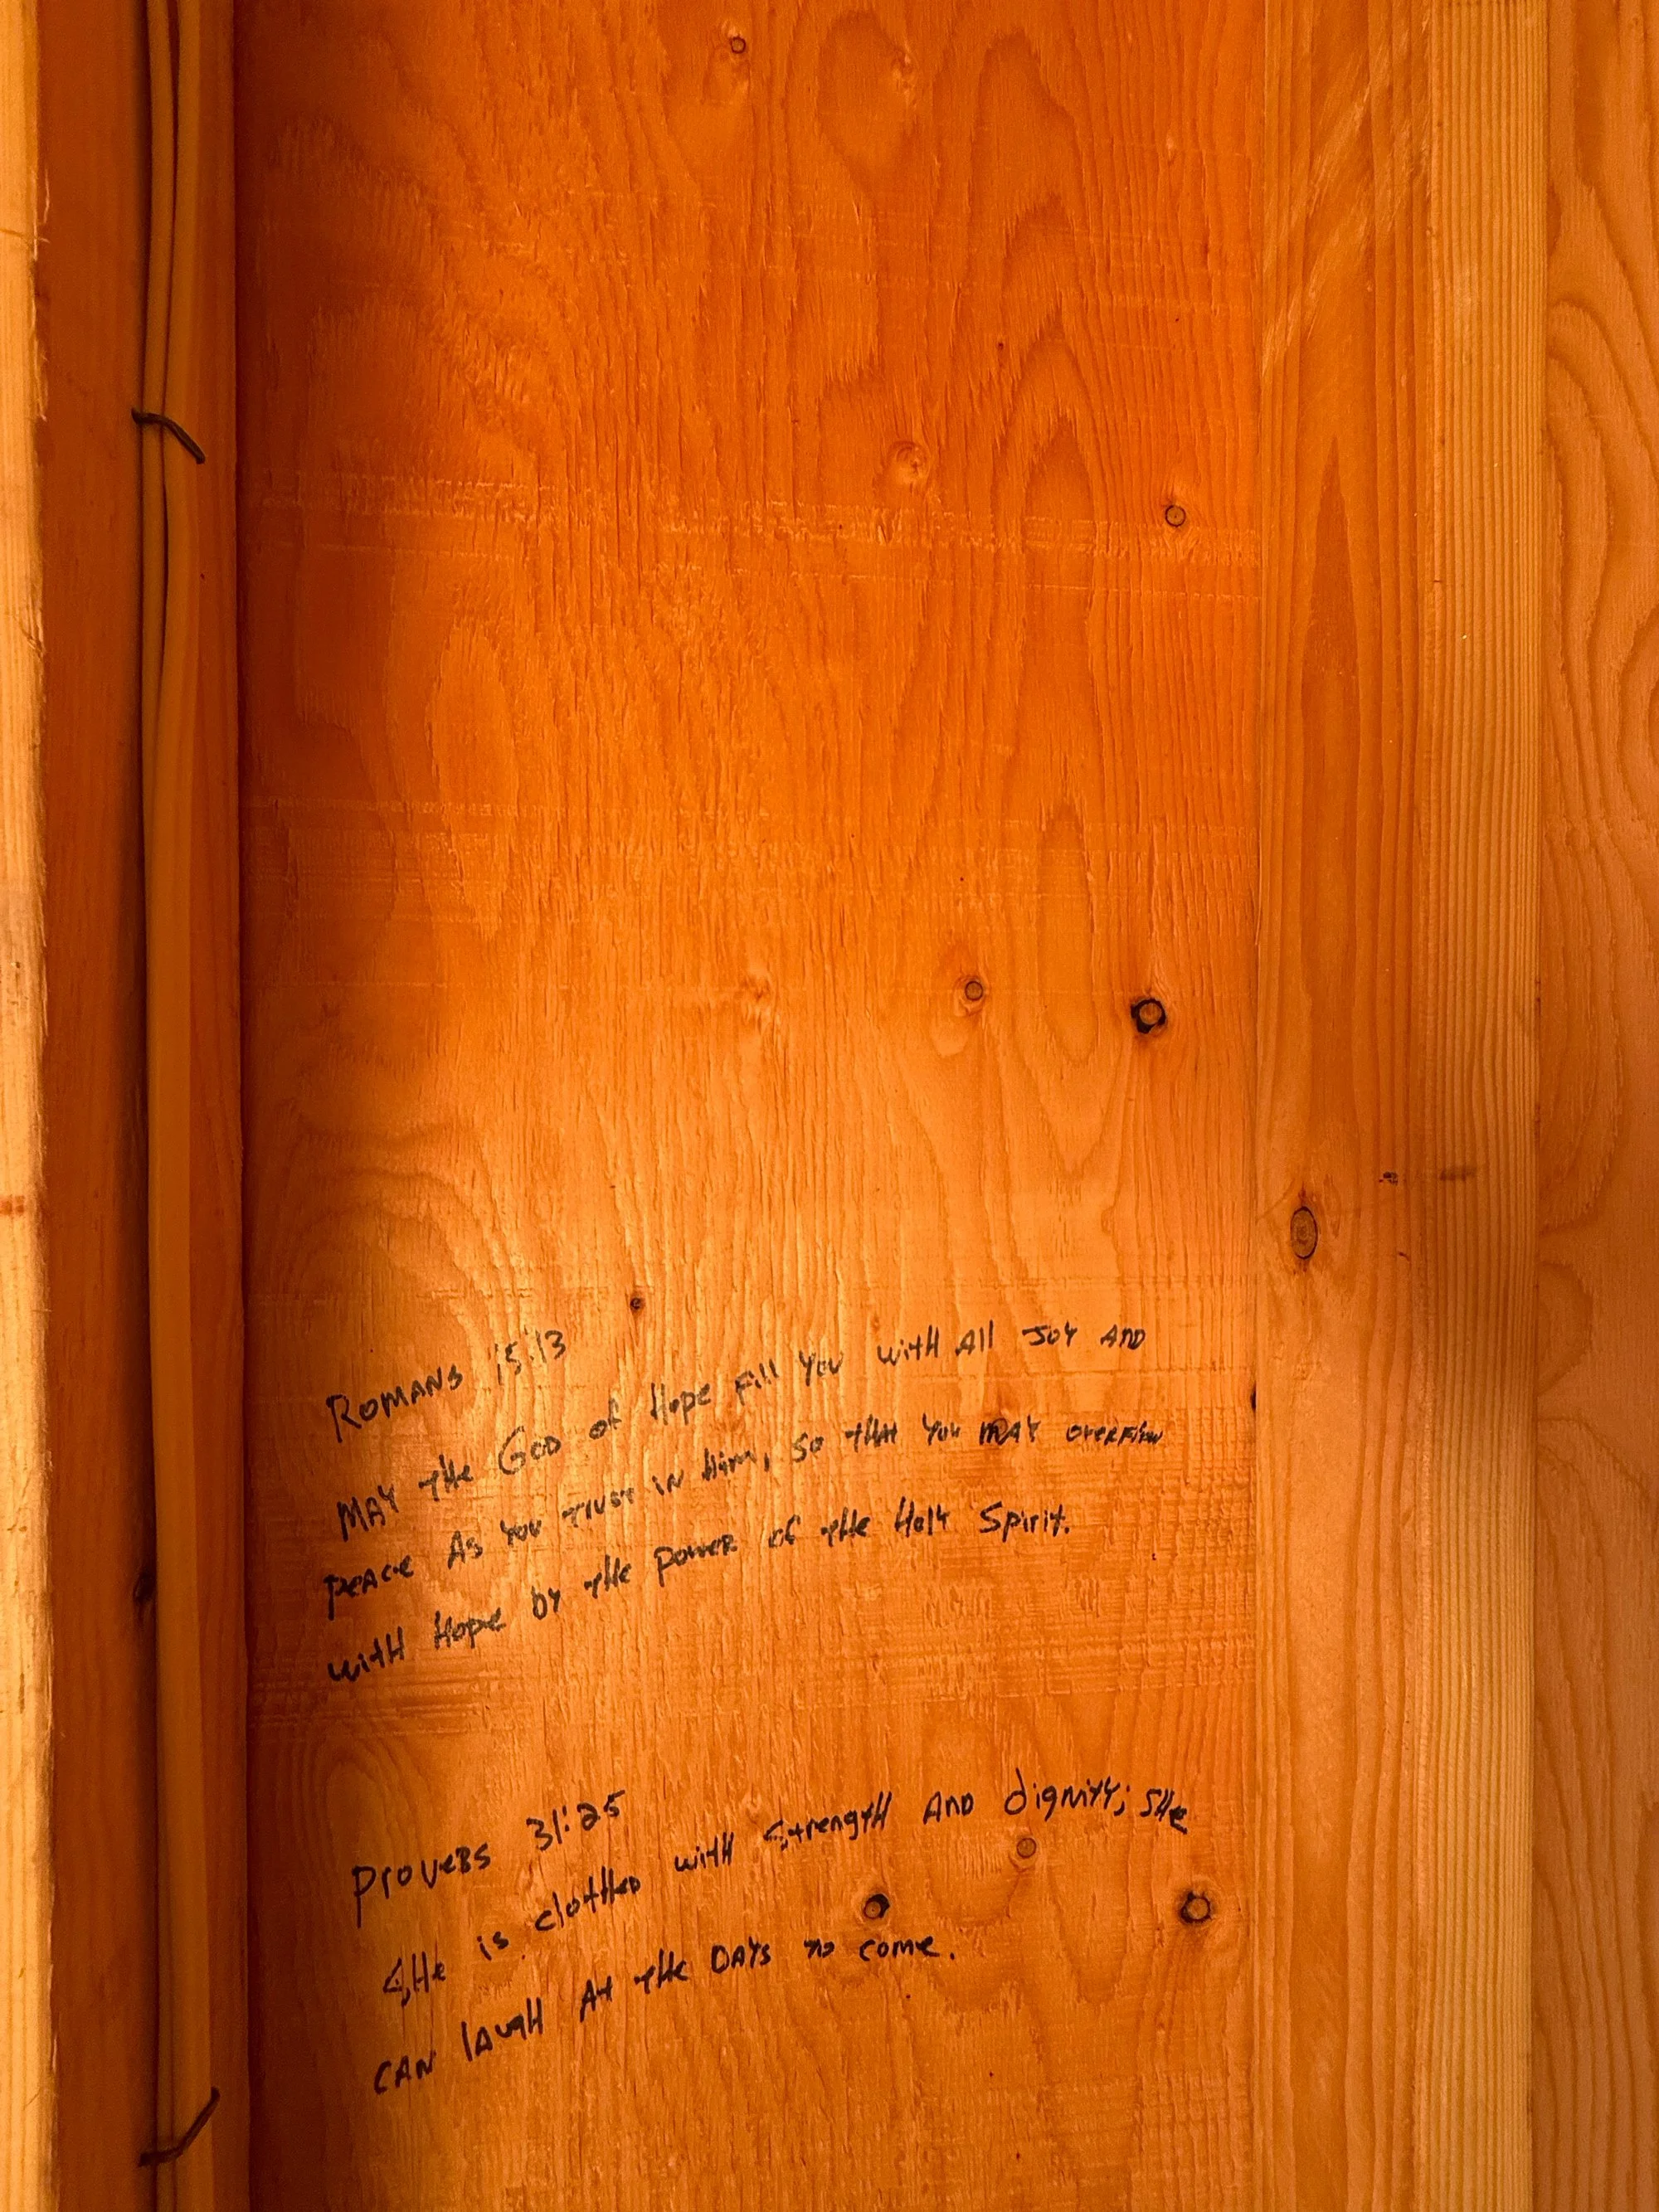 Romans 15:13
May the God of Hope fill you with All Joy AND
peace As You trust in Him, so tHAt You mAY overflow
with Hope by the power of the Holy Spirit.
Proverbs 31:25
SHe is clothed with Strength AND dignity; SHe
CAN lAugH At the DAYS to come.